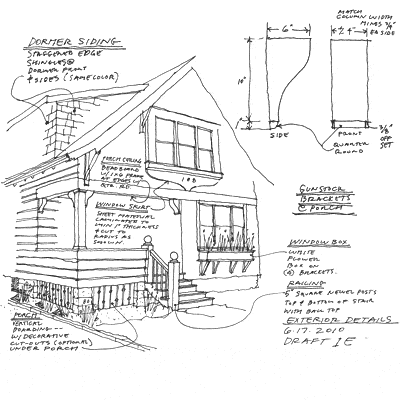 DORMER SIDING
STAGGERED EDGE
SHINGLES @
DORMER FRONT
& SIDES (SAME COLOR)
MATCH
COLUMN WIDTH
MINUS 3/4"
EA SIDE
6"
10"
SIDE
FRONT
3/8
OFF
SET
QUARTER
ROUND
PORCH CEILING
BEADBOARD
W/ ING FRAME
AT EDGES W/
QTR. RD.
108
WINDOW SKIRT
SHEET MATERIAL
LAMINATED TO
MIN 1" THICKNESS
& CUT TO
RADIUS AS
SHOWN.
GUNSTOCK
BRACKETS
@ PORCH
WINDOW BOX
WHITE
FLOWER
BOX ON
(4) BRACKETS.
RAILING
5" SQUARE NEWEL POSTS
TOP & BOTTOM OF STAIR
WITH BALL TOP
EXTERIOR DETAILS
6.17.2010
DRAFT IE
PORCH
VERTICAL
BOARDING --
W/ DECORATIVE
CUT-OUTS (OPTIONAL)
UNDER PORCH